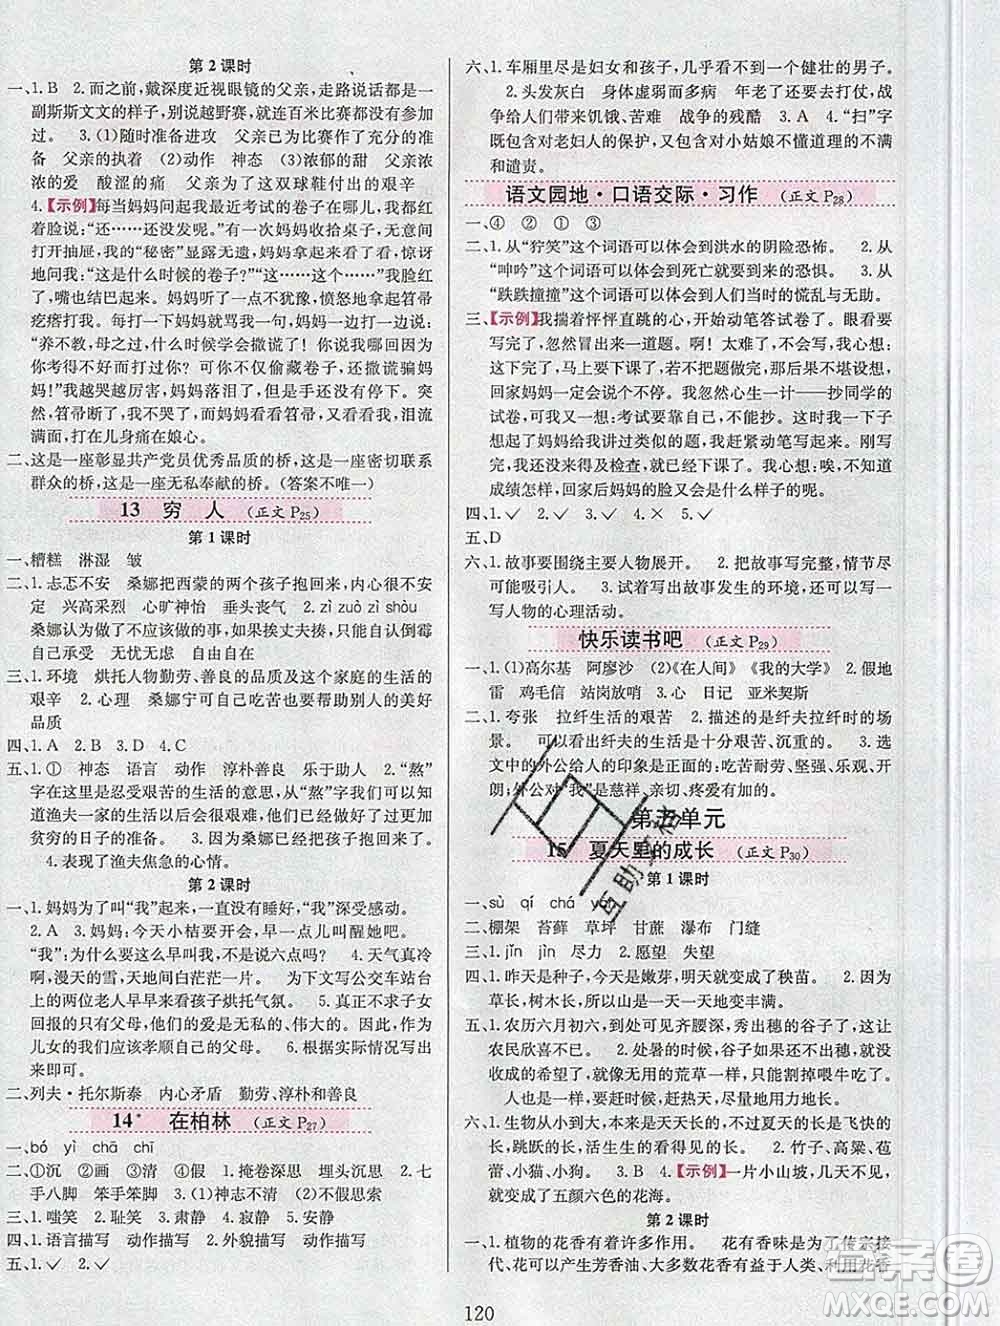 第2课时
一、1. B 2. 而之前,戴深度近视眼镜的父亲,走路说话都是一
副斯斯文文的样子,别说越野赛,就连百米比赛也没有参加
过。 3. (1)随时准备进攻 父亲已为比赛作了充分的准
备 父亲的执着 (2)动作 神态 (3)浓郁的甜 父亲浓
浓的爱 酸涩的痛 父亲为了这双球鞋付出的艰辛
4.【示例】每当妈妈问起我最近考试的卷子在哪儿,我都红
着脸说:“还……还没发。”有一次妈妈收拾桌子,无意中
打开抽屉,我的“秘密”显露无遗。妈妈气得瞪圆了眼,惊讶
地问我:“这是什么时候的卷子?”“这……这……”我脸红
了,嘴也结巴起来。妈妈一点也不犹豫,愤怒地拿起笤帚
疙瘩打我。每打一下妈妈就骂我一句,一边打一边说:
“养不教,母之过,什么时候学会撒谎了?你怎么可以因为
考得不好而去骗妈妈!你不可以偷偷藏卷子,撒谎骗妈
妈!”我越哭越厉害,妈妈落泪了,但是还没有停下。突
然,笤帚断了,我哭了,妈妈看看笤帚,再看看我,泪流
满面,真是打在儿身痛在娘心。
二、这是一座彰显共产党员优秀品质的桥,这是一座密切联系
群众的桥,这是一座无私奉献的桥。(答案不唯一)
13 穷人 (正文 P25)
第1课时
一、糟糕 淋湿 皱
二、1. 忐忑不安 桑娜把西蒙的两个孩子抱回来,内心很不安
定 兴高采烈 心旷神怡 垂头丧气 2. zì zuò zì shòu
桑娜为了做不应该做的事,如果挨丈夫揍,只有自认倒霉
自己承担后果 无忧无虑 自由自在
三、1. 环境 烘托人物勤劳、善良的品质及这个家庭的生活的
艰辛 2. 心理 桑娜宁可自己吃苦也要帮助别人的美好
品质
四、1. A 2. B 3. D 4. C
五、1. ① 神态 语言 动作 淳朴善良 乐于助人 2. “熬”
字在这里是忍受艰苦的生活的意思,从“熬”字可以体会到
渔夫一家以后的生活会更加艰苦,但渔夫已经作好了过更
贫穷的日子的准备。 3. 桑娜已经把孩子抱回来了。
4. 表现了渔夫焦急的心情。
第2课时
一、1. 妈妈为了叫“我”起来,一直都没睡好,“我”深受感动。
2. A 3. 妈妈:今天小桔要开会,早早出门,一点儿醒她吧。
“我”:为什么要这么早叫我,不是说六点吗? 4. 天气很冷
啊,漫天的雪,天地间白茫茫一片。 为下文写公交车站台
上的两位老人早早来看孩子烘托气氛。 5. 真正不求子女
回报的只有父母,他们的爱是无私的、伟大的。因此,作为
儿女的我们应该孝顺自己的父母。 6. 根据实际情况写出
来即可。
二、列夫·托尔斯泰 内心矛盾 勤劳、淳朴和善良
14* 在柏林 (正文 P27)
一、bó yì chā chī
二、①沉 ②画 ③清 ④假 1. 掩卷深思 深思熟虑 2. 七
手八脚 笨手笨脚 3. (1)神志不清 (2)不假思索
三、1. 嗤笑 2. 耻笑 3. 肃静 4. 寂静 5. 安静
四、1. 语言描写 动作描写 2. 外貌描写 动作描写
五、1. ✓ 2. ✓
六、1. 车厢里尽是妇女和孩子,几乎看不到一个健壮的男子。
2. 头发灰白 身体虚弱多病 年老了还要去打仗,战
争给人们带来饥饿、苦难 战争的残酷 3. A 4. “扫”字
既包含对老妇人的保护,又包含对小姑娘不懂道理的不满
和谴责。
语文园地·口语交际·习作 (正文 P28)
一、④ ② ① ③
二、1. 从“狞笑”这个词语可以体会到洪水的阴险恐怖。 2. 从
“呻吟”这个词语可以体会到死亡就要到来的恐惧。 3. 从
“跌跌撞撞”这个词语可以体会到人们当时的慌乱与无助。
三、【示例】我揣着怦怦直跳的心,开始动笔答试卷了。眼看要
写完了,忽然冒出来一道题。啊!太难了,不会写,我心想:
这下完了,马上要下课了,怎么办?如果考出不堪设想的成绩,
回家妈妈一定会说个不停。我忽然心生一计——抄同学的
试卷,可我又一想:考试要靠自己,不能抄。这时我一下子
想起了妈妈给我讲过类似的题,我赶紧动笔写起来。刚写
完,还没来得及检查,就已经下课了。唉!我心想:不知道
成绩怎样,回家后妈妈的脸又会是什么样子的呢!
四、1. ✓ 2. ✓ 3. ✓ 4. × 5. ✓
五、D
六、1. 故事要围绕主要人物展开。 2. 把故事写完整,情节尽
可能吸引人。 3. 试着写出故事发生的环境,还可以写一
写人物的心理活动。
快乐读书吧 (正文 P29)
一、1. (1)高尔基 阿廖沙 (2)《在人间》《我的大学》 2. 假地
雷 鸡毛信 站岗放哨 3. 心 日记 亚米契斯
二、1. 夸张 拉纤生活的艰苦 2. 描述的是纤夫拉纤时的场
景。 可以看出纤夫的生活是十分艰苦、沉重的。 3. 选
文中的外公给人的印象是正面的:吃苦耐劳、坚强、乐观、开
朗;外公对“我”是慈祥、亲切、疼爱有加的。
第五单元
15 夏天里的成长 (正文 P30)
第1课时
一、sù qí chá yàn
二、棚架 苔藓 草坪 甘蔗 瀑布 门缝
三、1. jǐn jìn 尽力 2. 愿望 失望
四、1. 昨天是种子,今天是嫩芽,明天就变成了秧苗。 2. 因为
草长,树木长,所以山是一天一天地变丰满。
五、1. 农历六月初六,到处可见齐腰深,秀出穗的谷子了,这让
农民欣喜不已。 2. 处暑的时候,高粱正是成熟的时候,没有收
成的希望了,就如无用的荒草一样了。 3. 植物是这样,
人也是一样。要赶时候,不能浪费大好时光。
六、1. 生物从小到大,本来是天天长的,不过夏天的长是飞快的
长,跳跃的长,活生生的看得见的长。 2. 竹子、高粱、苞
蕾、小猫、小狗。 3. B 4.【示例】一片小山坡,几天不见,
就变成了五颜六色的花海。
第2课时
一、1. 植物的花香有着许多作用。 花有香味是为了传宗接
代、花可以产生芳香油、大多数花香有益于人类、利用花香
120
互助文档
答案圈
MXQE.COM